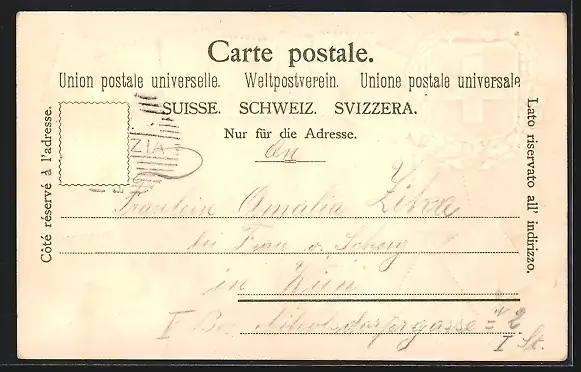 Carte postale.
Union postale universelle. Weltpostverein. Unione postale universale
SUISSE. SCHWEIZ. SVIZZERA.
Nur für die Adresse.
An
Côté réservé à l'adresse.
ZIA
Lato riservato all' indirizzo.
Fräulein Amalia Zika
bei Frau v.
in Wien
I Bez. Nikolsdorfergasse № 2
I St.